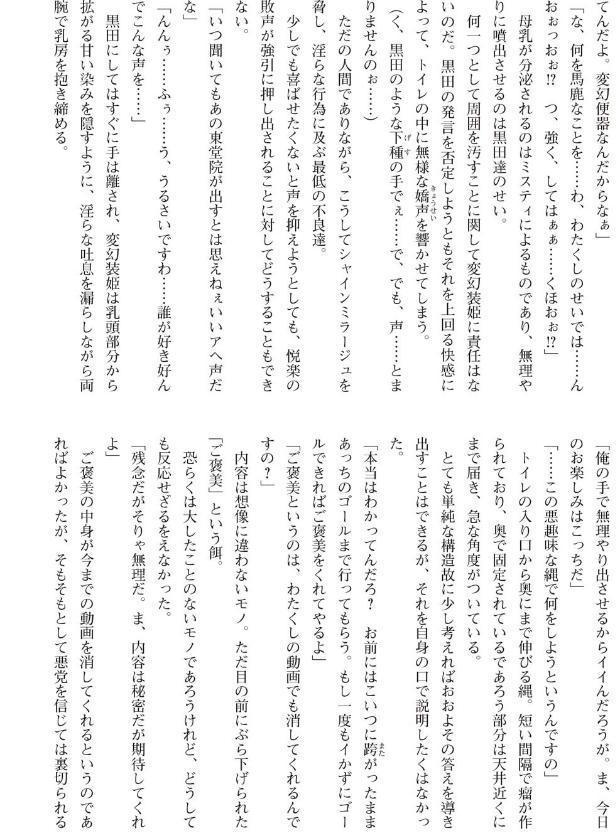 てんだよ。変幻便器なんだからなぁ」
「な、何を馬鹿なことを……わ、わたくしのせいでは……ん
おぉっおぉ!?　つ、強く、してはぁぁ……くほおぉ!?」
　母乳が分泌されるのはミスティによるものであり、無理や
りに噴出させるのは黒田達のせい。
　何一つとして周囲を汚すことに関して変幻装姫に責任はな
いのだ。黒田の発言を否定しようともそれを上回る快感に
よって、トイレの中に無様な嬌声を響かせてしまう。
（く、黒田のような下種の手でぇ……で、でも、声……とま
りませんのぉ……）
　ただの人間でありながら、こうしてシャインミラージュを
脅し、淫らな行為に及ぶ最低の不良達。
　少しでも喜ばせたくないと声を抑えようとしても、悦楽の
敗声が強引に押し出されることに対してどうすることもでき
ない。
「いつ聞いてもあの東堂院が出すとは思えねぇいいアヘ声だ
な」
「んんぅ……ふぅ……う、うるさいですわ……誰が好き好ん
でこんな声を……」
　黒田にしてはすぐに手は離され、変幻装姫は乳頭部分から
拡がる甘い染みを隠すように、淫らな吐息を漏らしながら両
腕で乳房を抱き締める。
「俺の手で無理やり出させるからイイんだろうが。ま、今日
のお楽しみはこっちだ」
「……この悪趣味な縄で何をしようというんですの」
　トイレの入り口から奥にまで伸びる縄。短い間隔で瘤が作
られており、奥で固定されているであろう部分は天井近くに
まで届き、急な角度がついている。
　とても単純な構造故に少し考えればおおよその答えを導き
出すことはできるが、それを自身の口で説明したくはなかっ
た。
「本当はわかってんだろ？　お前にはこいつに跨がったまま
あっちのゴールまで行ってもらう。もし一度もイかずにゴー
ルできればご褒美をくれてやるよ」
「ご褒美というのは、わたくしの動画でも消してくれるんで
すの？」
　内容は想像に違わないモノ。ただ目の前にぶら下げられた
『ご褒美』という餌。
　恐らくは大したことのないモノであろうけれど、どうして
も反応せざるをえなかった。
「残念だがそりゃ無理だ。ま、内容は秘密だが期待してくれ
よ」
　ご褒美の中身が今までの動画を消してくれるというのであ
ればよかったが、そもそもとして悪党を信じては裏切られる